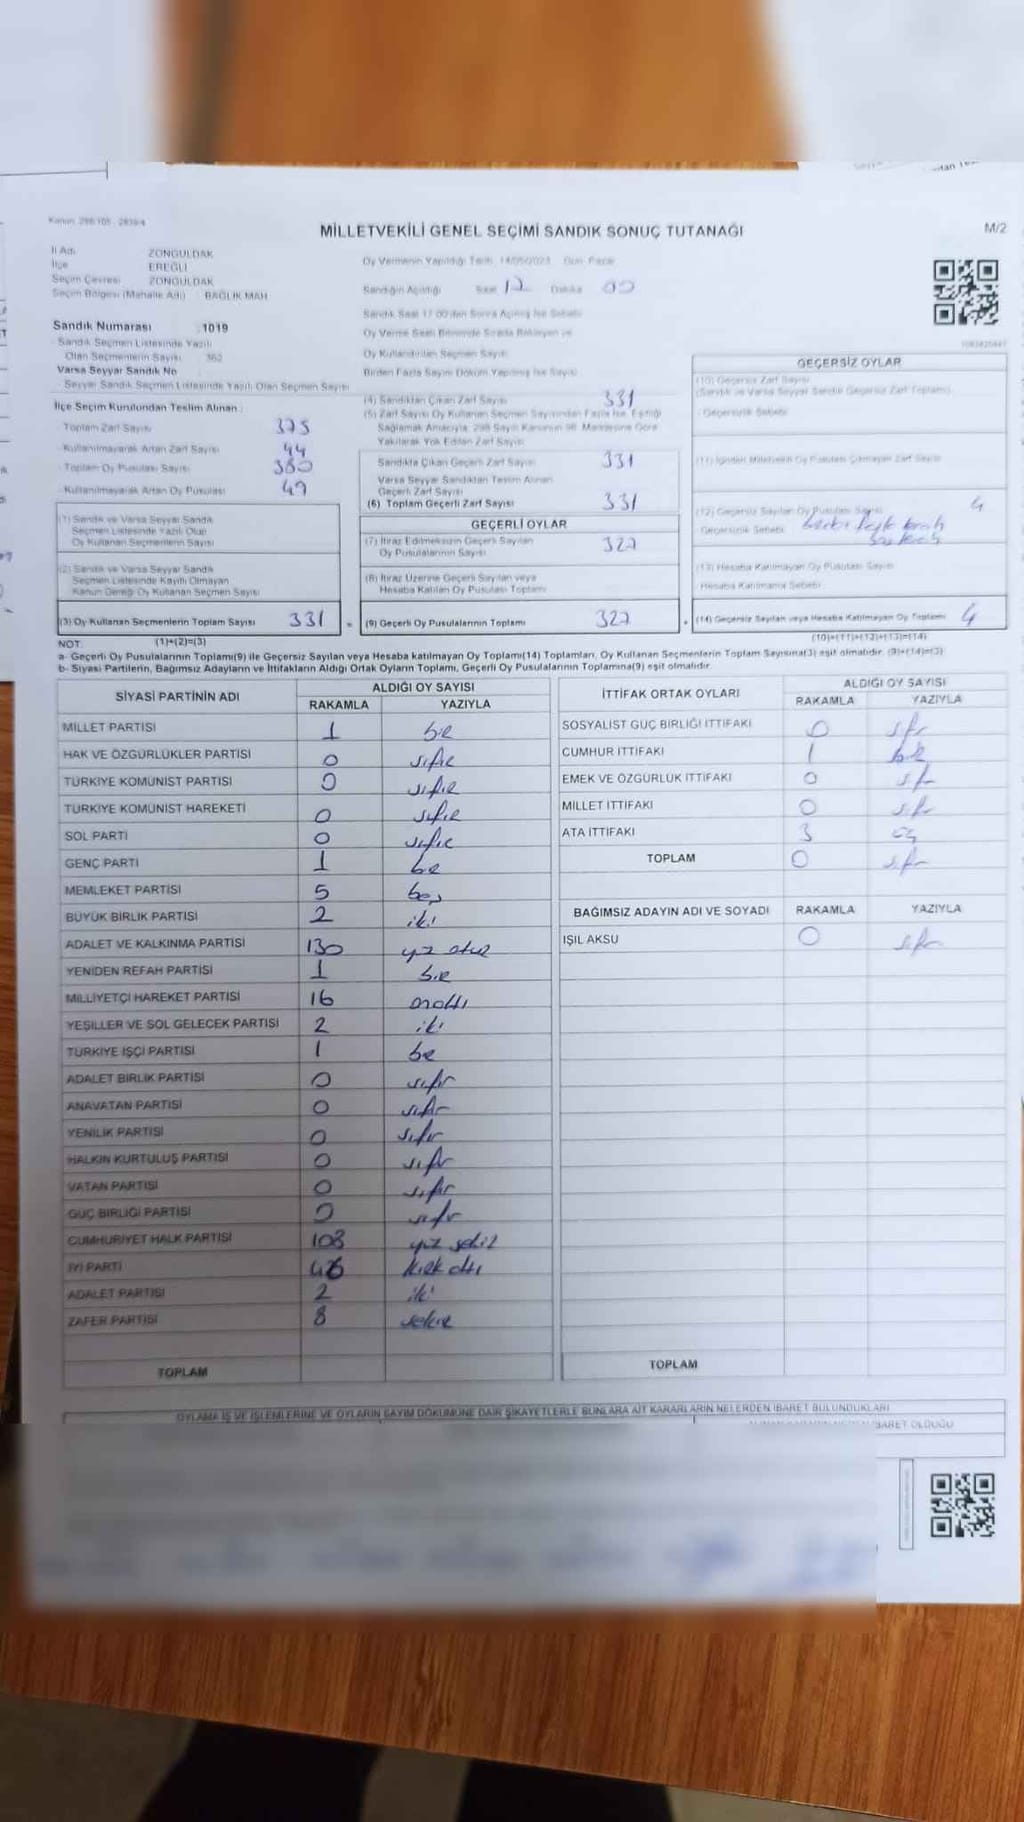 Kanun: 298/105 - 2839/4
MİLLETVEKİLİ GENEL SEÇİMİ SANDIK SONUÇ TUTANAĞI
M/2
İl Adı ZONGULDAK
İlçe EREĞLİ
Seçim Çevresi ZONGULDAK
Seçim Bölgesi (Mahalle Adı) BAĞLIK MAH
Oy Vermenin Yapıldığı Tarih: 14/05/2023 Gün: Pazar
Sandığın Açıldığı Saat 17 Dakika 00
Sandık Saat 17:00'den Sonra Açılmış İse Sebebi
Oy Verme Saati Bitiminde Sırada Bekleyen ve
Oy Kullandırılan Seçmen Sayısı
Birden Fazla Sayım Döküm Yapılmış İse Sayısı
Sandık Numarası : 1019
Sandık Seçmen Listesinde Yazılı
Olan Seçmenlerin Sayısı : 362
Varsa Seyyar Sandık No
Seyyar Sandık Seçmen Listesinde Yazılı Olan Seçmen Sayısı
İlçe Seçim Kurulundan Teslim Alınan :
Toplam Zarf Sayısı 375
Kullanılmayarak Artan Zarf Sayısı 44
Toplam Oy Pusulası Sayısı 380
Kullanılmayarak Artan Oy Pusulası 49
(1) Sandık ve Varsa Seyyar Sandık
Seçmen Listesinde Yazılı Olup
Oy Kullanan Seçmenlerin Sayısı
(2) Sandık ve Varsa Seyyar Sandık
Seçmen Listesinde Kayıtlı Olmayan
Kanun Gereği Oy Kullanan Seçmen Sayısı
(3) Oy Kullanan Seçmenlerin Toplam Sayısı 331 =
(4) Sandıktan Çıkan Zarf Sayısı 331
(5) Zarf Sayısı Oy Kullanan Seçmen Sayısından Fazla İse, Eşitliği
Sağlamak Amacıyla, 298 Sayılı Kanunun 98. Maddesine Göre
Yakılarak Yok Edilen Zarf Sayısı
Sandıkta Çıkan Geçerli Zarf Sayısı 331
Varsa Seyyar Sandıktan Teslim Alınan
Geçerli Zarf Sayısı
(6) Toplam Geçerli Zarf Sayısı 331
GEÇERLİ OYLAR
(7) İtiraz Edilmeksizin Geçerli Sayılan 327
Oy Pusulalarının Sayısı
(8) İtiraz Üzerine Geçerli Sayılan veya
Hesaba Katılan Oy Pusulası Toplamı
(9) Geçerli Oy Pusulalarının Toplamı 327
GEÇERSİZ OYLAR
(10) Geçersiz Zarf Sayısı
(Sandık ve Varsa Seyyar Sandık Geçersiz Zarf Toplamı)
Geçersizlik Sebebi
(11) İçinden Milletvekili Oy Pusulası Çıkmayan Zarf Sayısı
(12) Geçersiz Sayılan Oy Pusulası Sayısı 4
Geçersizlik Sebebi
(13) Hesaba Katılmayan Oy Pusulası Sayısı
Hesaba Katılmama Sebebi
(14) Geçersiz Sayılan veya Hesaba Katılmayan Oy Toplamı 4
NOT: (1)+(2)=(3) (10)+(11)+(12)+(13)=(14)
a- Geçerli Oy Pusulalarının Toplamı(9) ile Geçersiz Sayılan veya Hesaba katılmayan Oy Toplamı(14) Toplamları, Oy Kullanan Seçmenlerin Toplam Sayısına(3) eşit olmalıdır. (9)+(14)=(3)
b- Siyasi Partilerin, Bağımsız Adayların ve İttifakların Aldığı Ortak Oyların Toplamı, Geçerli Oy Pusulalarının Toplamına(9) eşit olmalıdır.
SİYASİ PARTİNİN ADI ALDIĞI OY SAYISI
RAKAMLA YAZIYLA
MİLLET PARTİSİ 1 bir
HAK VE ÖZGÜRLÜKLER PARTİSİ 0 sıfır
TÜRKİYE KOMÜNİST PARTİSİ 0 sıfır
TÜRKİYE KOMÜNİST HAREKETİ 0 sıfır
SOL PARTİ 0 sıfır
GENÇ PARTİ 1 bir
MEMLEKET PARTİSİ 5 beş
BÜYÜK BİRLİK PARTİSİ 2 iki
ADALET VE KALKINMA PARTİSİ 130 yüz otuz
YENİDEN REFAH PARTİSİ 1 bir
MİLLİYETÇİ HAREKET PARTİSİ 16 onaltı
YEŞİLLER VE SOL GELECEK PARTİSİ 2 iki
TÜRKİYE İŞÇİ PARTİSİ 1 bir
ADALET BİRLİK PARTİSİ 0 sıfır
ANAVATAN PARTİSİ 0 sıfır
YENİLİK PARTİSİ 0 sıfır
HALKIN KURTULUŞ PARTİSİ 0 sıfır
VATAN PARTİSİ 0 sıfır
GÜÇ BİRLİĞİ PARTİSİ 0 sıfır
CUMHURİYET HALK PARTİSİ 108 yüz sekiz
İYİ PARTİ 46 kırk altı
ADALET PARTİSİ 2 iki
ZAFER PARTİSİ 8 sekiz
TOPLAM
İTTİFAK ORTAK OYLARI ALDIĞI OY SAYISI
RAKAMLA YAZIYLA
SOSYALİST GÜÇ BİRLİĞİ İTTİFAKI 0 sıfır
CUMHUR İTTİFAKI 1 bir
EMEK VE ÖZGÜRLÜK İTTİFAKI 0 sıfır
MİLLET İTTİFAKI 0 sıfır
ATA İTTİFAKI 3 üç
TOPLAM 0 sıfır
BAĞIMSIZ ADAYIN ADI VE SOYADI RAKAMLA YAZIYLA
IŞIL AKSU 0 sıfır
TOPLAM
OYLAMA İŞ VE İŞLEMLERİNE VE OYLARIN SAYIM DÖKÜMÜNE DAİR ŞİKAYETLERLE BUNLARA AİT KARARLARIN NELERDEN İBARET BULUNDUKLARI
İBARET OLDUĞU